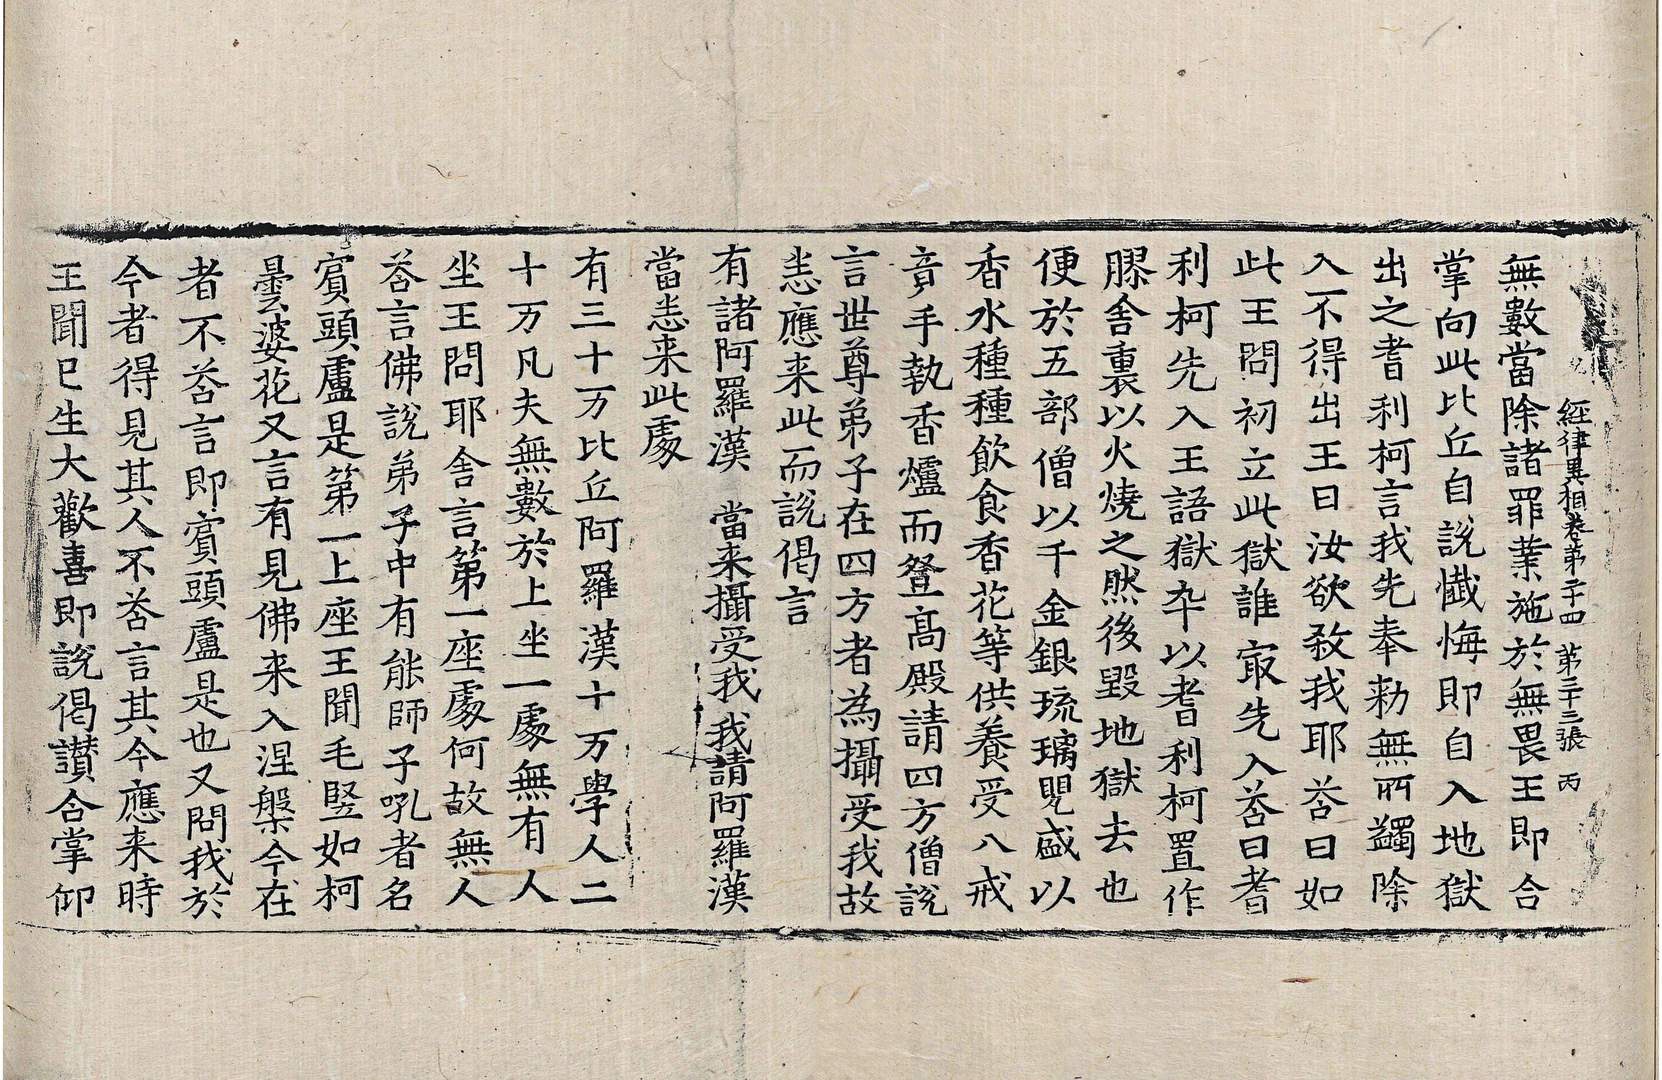 經律異相卷第二十四 第二十三張 丙
無數當除諸罪業施於無畏王即合
掌向此比丘自說懺悔即自入地獄
出之耆利柯言我先奉勑無所蠲除
入不得出王曰汝欲敎我耶荅曰如
此王問初立此獄誰冣先入荅曰耆
利柯先入王語獄卒以耆利柯置作
膠舍裏以火燒之然後毀地獄去也
便於五部僧以千金銀琉璃甖盛以
香水種種飲食香花等供養受八戒
竟手執香爐而登髙殿請四方僧說
言世尊弟子在四方者為攝受我故
悉應来此而說偈言
有諸阿羅漢 當来攝受我 我請阿羅漢
當悉来此處
有三十万比丘阿羅漢十万學人二
十万凡夫無數於上坐一處無有人
坐王問耶舍言第一座處何故無人
荅言佛說弟子中有能師子吼者名
賓頭盧是第一上座王聞毛竪如柯
曇婆花又言有見佛来入涅槃今在
者不荅言即賓頭盧是也又問我於
今者得見其人不荅言其今應来時
王聞已生大歡喜即說偈讃合掌仰